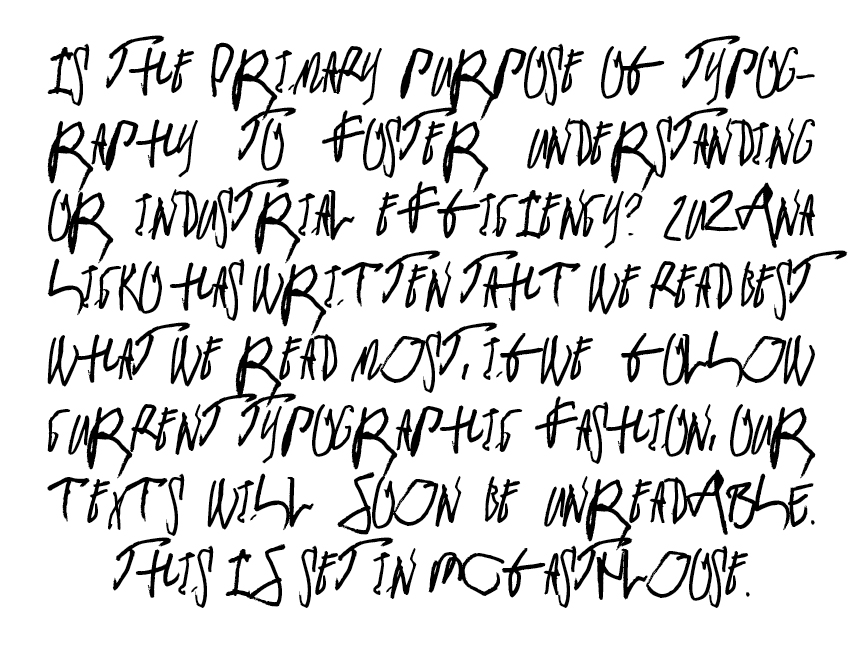 IS THE PRIMARY PURPOSE OF TYPOG-
RAPHY TO FOSTER UNDERSTANDING
OR INDUSTRIAL EFFICIENCY? ZUZANA
LICKO HAS WRITTEN TAHT WE READ BEST
WHAT WE READ MOST, IF WE FOLLOW
CURRENT TYPOGRAPHIC FASHION, OUR
TEXTS WILL SOON BE UNREADABLE.
THIS IS SET IN